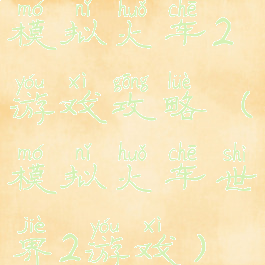 mó nǐ huǒ chē
模拟火车2
yóu xì gōng lüè
游戏攻略(
mó nǐ huǒ chē shì
模拟火车世
jiè yóu xì
界2游戏)